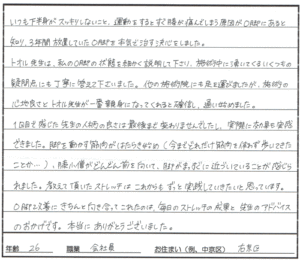 いつも下半身がスッキリしないこと、運動をするとすぐ腰が痛んでしまう原因がO脚にあると
知り、3年間放置していたO脚を本気で治す決心をしました。
トオル先生は、私のO脚の状態を細かく説明して下さり、施術中に湧いてくるいくつもの
疑問点にも丁寧に答えて下さいました。他の施術院にも足を運びましたが、施術の
心地良さとトオル先生が一番親身になってくれると確信し、通い始めました。
1回目で感じた先生の人柄の良さは最後まで変わりませんでしたし、実際に効果を実感
できました。脚を動かす筋肉がはたらきだし(今までどれだけ筋肉を使わず歩いてきた
ことか…)、膝小僧がどんどん前を向いて、脚がまっすぐに近づいていることが感じら
れました。教えて頂いたストレッチはこれからもずっと実践していきたいと思っています。
O脚改善にきちんと向き合ってこれたのは、毎日のストレッチの成果と先生のアドバイス
のおかげです。本当にありがとうございました。
年齢 26 職業 会社員 お住まい(例、中京区) 右京区